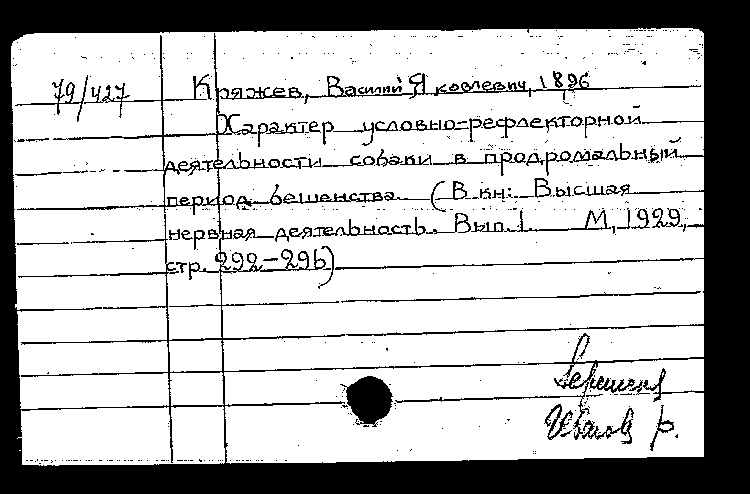 79/427 Кряжев, Василий Яковлевич, 1896
Характер условно-рефлекторной
деятельности собаки в продромальный
период бешенства. (В кн: Высшая
нервная деятельность. Вып. 1. М, 1929,
стр. 292-296)